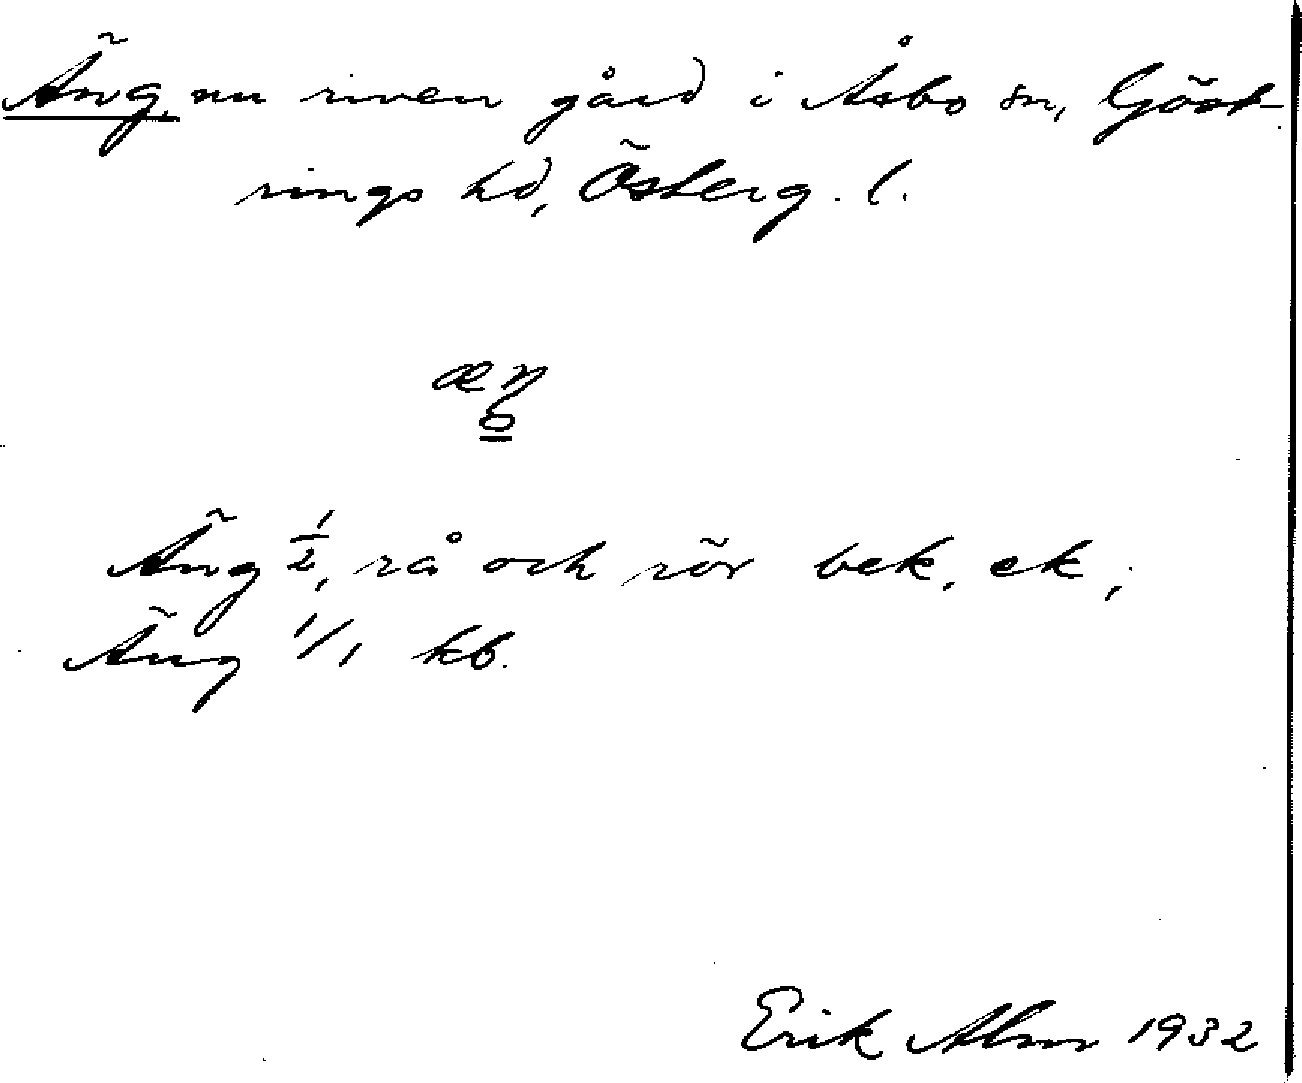 Äng, nu riven gård i Åsbo sn, Göst-
rings hd, Österg. l.
æŋ
Äng 1/2, rå och rör bek. ek;
Äng 1/1 kb.
Erik Alm 1932